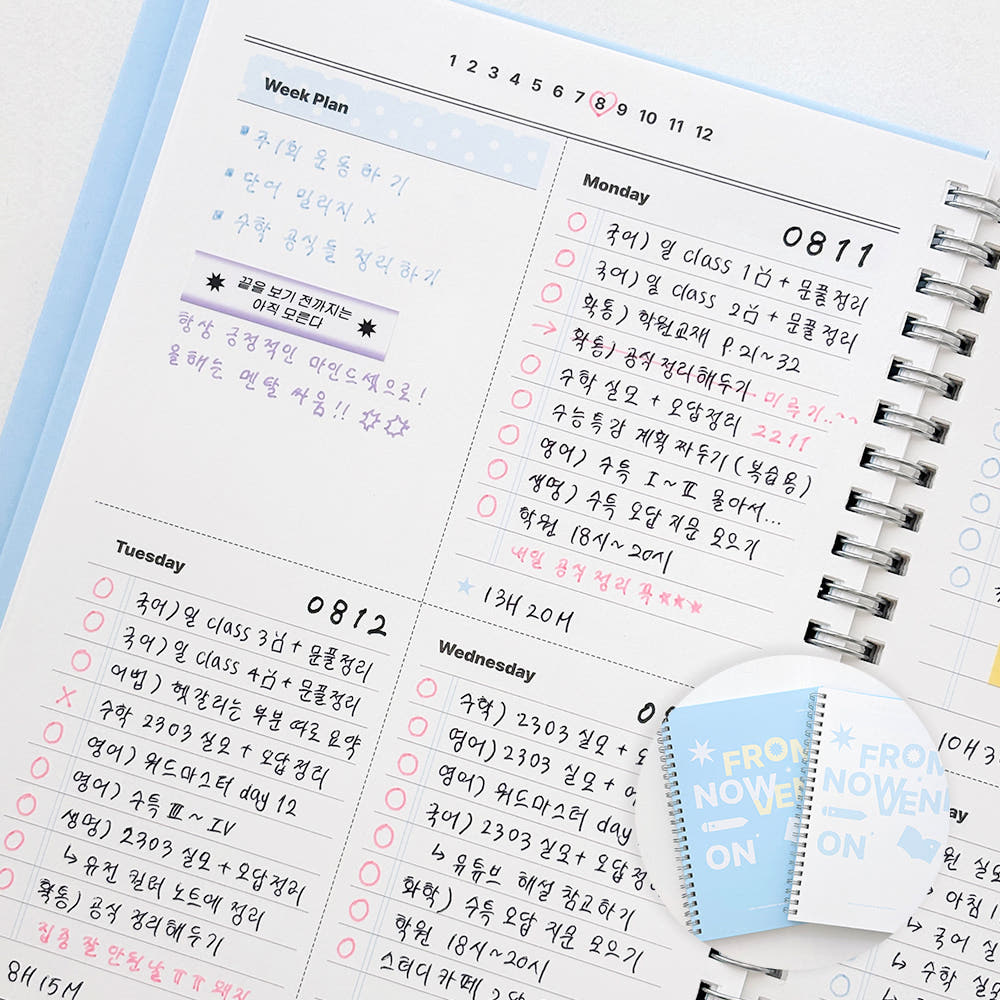 1 2 3 4 5 6 7 8 9 10 11 12
Week Plan
주1회 운동하기
단어 밀리지 X
수학 공식들 정리하기
끝을 보기 전까지는
아직 모른다
항상 긍정적인 마인드셋으로!
올해는 멘탈 싸움!!
Monday
0811
국어) 일 class 1강 + 문풀정리
국어) 일 class 2강 + 문풀정리
확통) 학원교재 P.21~32
확통) 공식 정리해두기 미루기..~~
수학 실모 + 오답정리 2211
수능특강 계획 짜두기 (복습용)
영어) 수특 I~II 몰아서...
생명) 수특 오답 지문 모으기
학원 18시~20시
내일 공식 정리 꼭 ★★★
★ 13H 20M
Tuesday
0812
국어) 일 class 3강 + 문풀정리
국어) 일 class 4강 + 문풀정리
어법) 헷갈리는 부분 따로 요약
X 수학 2303 실모 + 오답정리
영어) 워드마스터 day 12
영어) 수특 III~IV
생명) 2303 실모 + 오답정리
↳ 유전 컬러 노트에 정리
확통) 공식 정리해두기
집중 잘 안된날 ㅠㅠ
8H 15M
Wednesday
수학) 2303 실모 +
영어) 2303 실모 +
영어) 워드마스터 day
국어) 2303 실모 + 오답
↳ 유튜브 해설 참고하기
화학) 수특 오답 지문 모으기
학원 18시~20시
스터디카페
FROM
NOW
ON
FROM
NOW
ON
10H 3
실모
↳ 아침
↳ 국어 실
↳ 수학 실모